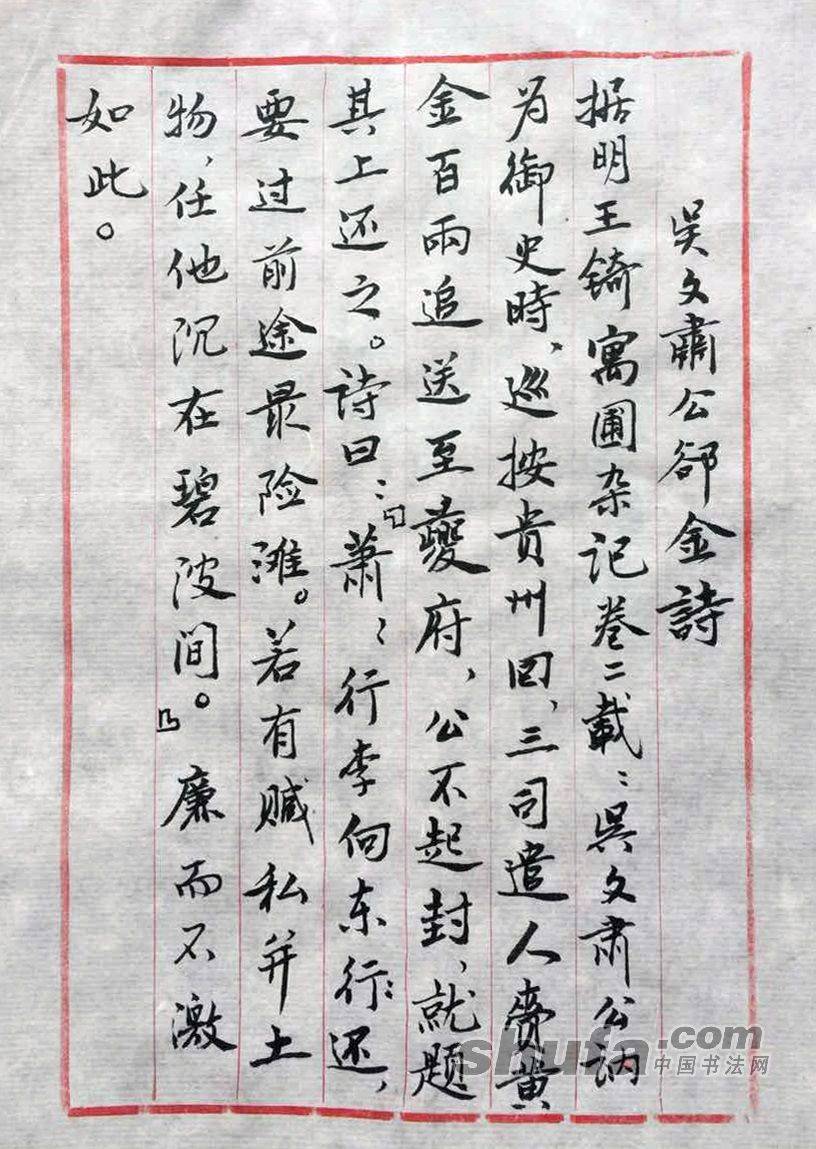 吴文肅公郤金詩
据明王錡寓圃杂记卷二載：吴文肃公訥
为御史時、巡按贵州回，三司遣人赍黄
金百兩追送至夔府，公不起封，就题
其上还之。詩曰：『萧〻行李向东行：还，
要过前途最险滩。若有贓私并土
物，任他沉在碧波间。』廉而不激
如此。
shufa.com
中国书法网